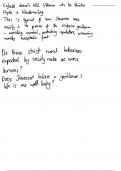 Enfield doesn't tell Utterson who he thinks
Hyde is blackmailing
- This is typical of how Stevenson uses
to the Victorian gentleman
- avoiding scandal, protecting reputation, preserving
outwardly acceptable front
Do these strict moral behaviors
expected by society make us worse
humans?
Does Stevenson believe a gentleman's
life is one worth living?